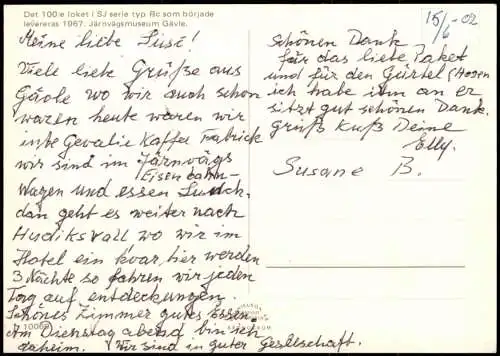 Det 100:e loket i SJ serie typ Rc som började
levereras 1967. Järnvägsmuseum Gävle.
15/6-02
Meine liebe Susi!
Viele liebe Grüße aus
Gävle wo wir auch schon
waren heute waren wir
in Gevalie Kaffe Fabrick
wir sind im Järnvägs
Eisenbahn-
Wagen und essen Lunch,
dan geht es weiter nach
Hudiksvall wo wir im
Hotel ein kvar, hier werden
3 Nächte so fahren wir jeden
Tog auf entdeckungen.
Schönes Zimmer gutes Essen.
Am Dienstag abend bin ich
daheim. Wir sind in guter Gesellschaft.
schönen Dank
für das liebe Paket
und für den Gürtel (Hosen
ich habe ihm an er
sitzt gut schönen Dank.
gruß Kuß Deine
Elly.
Susane B.